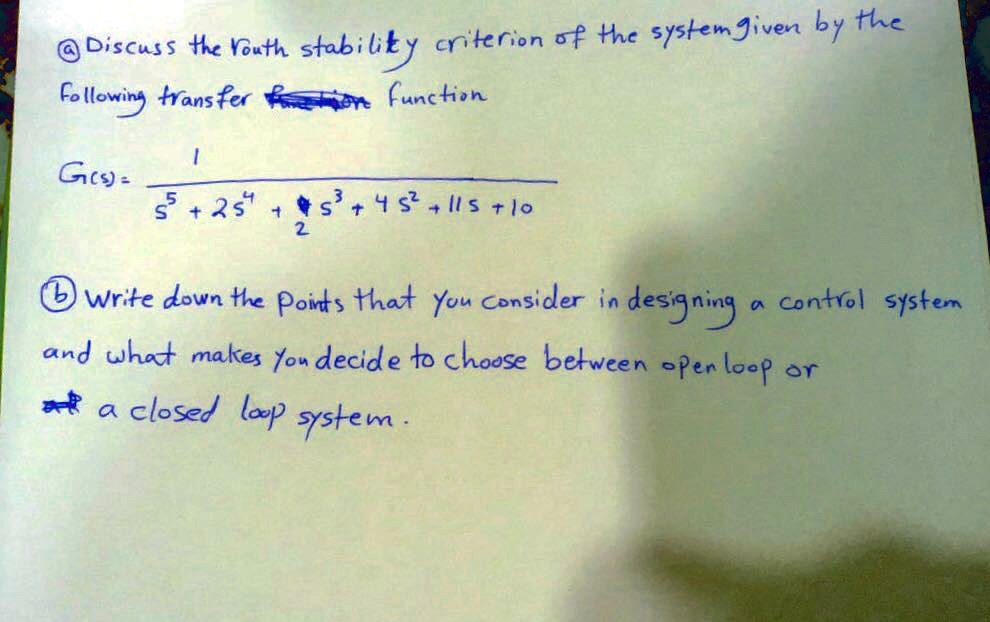 (a) Discuss the Routh stability criterion of the system given by the
following transfer function
G(s) = 1
s^5 + 2s^4 + 2 s^3 + 4 s^2 + 11 s + 10
(b) write down the points that you consider in designing a control system
and what makes you decide to choose between open loop or
a closed loop system.